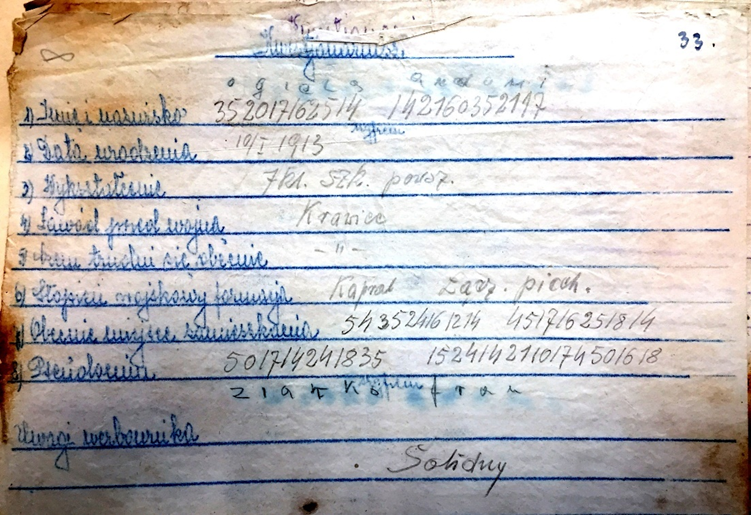 33.
1) Imię i nazwisko 352017162514 142160352117
2) Data urodzenia 10/I 1913
3) Wykształcenie 7 kl. szk. powsz.
4) Zawód przed wojną Krawiec
5) Czem trudni się obecnie - " -
6) Stopień wojskowy formacja Kapral Ząsz. piech.
7) Obecnie miejsce zamieszkania 543524161214 45171625 1814
8) Pseudonim 501714241835 1524142110174501618
Uwagi werbownika
Solidny